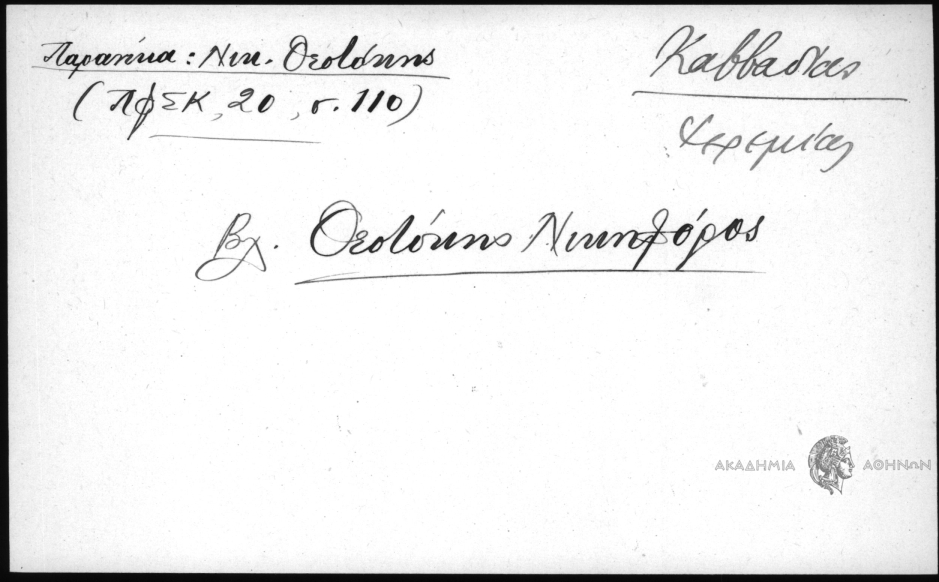 Παρανίκα : Νικ. Θεοτόκης
(ΠΦΣΚ, 20, σ. 110)
Καββαδίας
Ἱερεμίας
Βλ. Θεοτόκης Νικηφόρος
ΑΚΑΔΗΜΙΑ ΑΘΗΝΩΝ